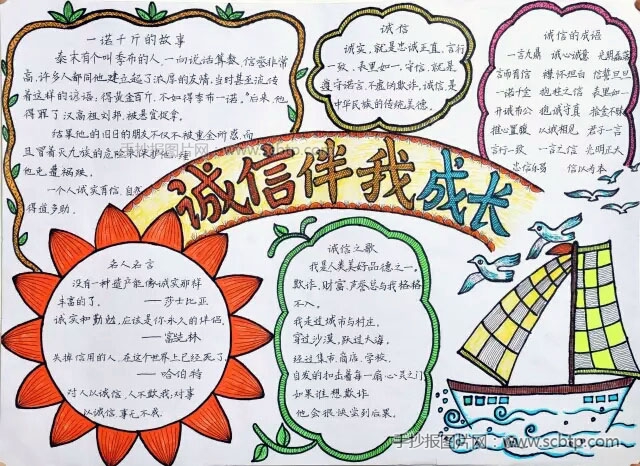 一诺千斤的故事
秦末有个叫季布的人，一向说话算数，信誉非常
高，许多人都同他建立起了浓厚的友情，当时甚至流传
着这样的谚语：得黄金百斤，不如得季布一诺。"后来，他
得罪了汉高祖刘邦，被悬赏捉拿。
结果他的旧日的朋友不仅不被重金所惑，而
且冒着灭九族的危险来保护他，
他免遭祸殃。
一个人诚实有信，自然
得道多助。
诚信
诚实，就是忠诚正直，言行
一致，表里如一，守信，就是
遵守诺言、不虚伪欺诈，诚信，是
中华民族的传统美德。
诚信的成语
一言九鼎 诚心诚意 光明磊落
言而有信 襟怀坦白 信誓旦旦
一诺千金 抱柱之信 表里如一
开诚布公 抱诚守真 拾金不昧
推心置腹 以诚相见 君子一言
言行一致 一言乞信 光明正大
忠信乐易 信以为本
诚信伴我成长
名人名言
没有一种遗产能像诚实那样
丰富的了。——莎士比亚
诚实和勤勉，应该是你永久的伴侣
——富兰林
失掉信用的人，在这个世界上已经死了。
——哈伯特
对人以诚信，人不欺我；对事
以诚信，事无不成。
诚信之歌
我是人类美好品德之一。
欺诈，财富，声誉总与我格格
不入。
我走过城市与村庄。
穿过沙漠，跃过大海。
经过集市、商店、学校。
自发的扣击着每一扇心灵之门
如果谁想欺诈
他会很快尝到后果。
手抄报图片网：www.scbtp.com
手抄报图片网：www.scbtp.com